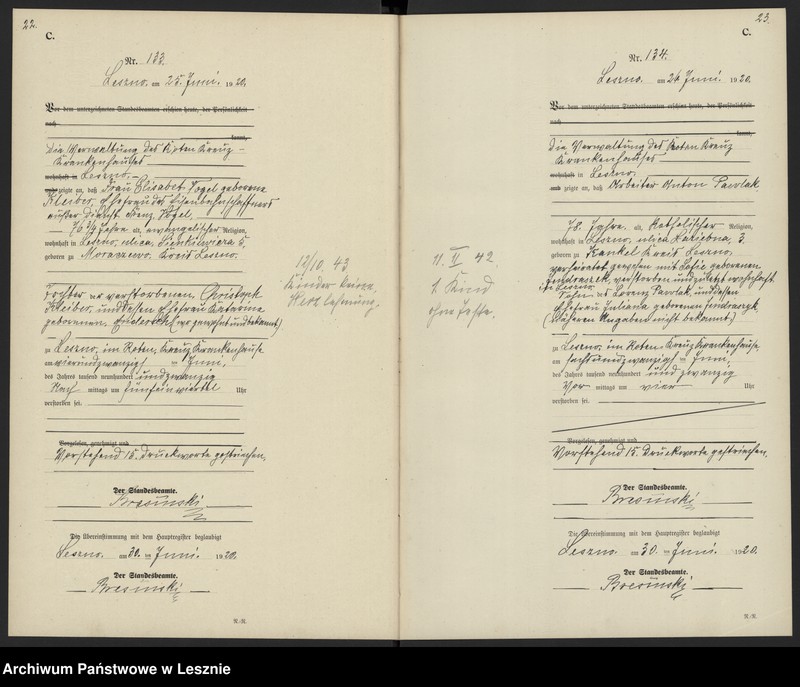 22.
C.
Nr. 133.
Leszno, am 25. Juni. 1920.
Vor dem unterzeichneten Standesbeamten erschien heute, der Persönlichkeit
nach
kannt,
Die Verwaltung des Roten Kreuz-
Krankenhauses
wohnhaft in Leszno,
und zeigte an, daß Frau Elisabet Vogel geborene
Kleiber, Ehefrau des Eisenbahnschaffners
außer Dienst Vogel,
76 3/4 Jahre alt, evangelischer Religion,
wohnhaft in Leszno, ulica Sienkiewicza 5,
geboren zu Kreis Leszno.
Tochter der verstorbenen Christoph
Kleiber, und dessen Ehefrau
geborenen
zu Leszno, im Roten Kreuz Krankenhause
am vierundzwanzig ten Juni,
des Jahres tausend neunhundert und zwanzig
Nach mittags um fünf Uhr
verstorben sei.
Vorgelesen, genehmigt und
Vorstehend 15. Druckworte gestrichen.
Der Standesbeamte.
Bresinski
Die Übereinstimmung mit dem Hauptregister beglaubigt
Leszno, am 30. ten Juni. 1920.
Der Standesbeamte.
Bresinski
R.-R.
12/10. 43
Kinder
23.
C.
Nr. 134.
Leszno, am 26. Juni. 1920.
Vor dem unterzeichneten Standesbeamten erschien heute, der Persönlichkeit
nach
kannt,
Die Verwaltung des Roten Kreuz
Krankenhauses
wohnhaft in Leszno,
und zeigte an, daß Arbeiter Anton Pawlak,
78. Jahre alt, katholischer Religion,
wohnhaft in Leszno, ulica 3.
geboren zu Kankel Kreis Leszno,
verheiratet gewesen mit Sofie geborenen
verstorben und zuletzt wohnhaft
in Leszno.
Sohn des Lorenz Pawlak, und dessen
Ehefrau Juliana geborenen
(Näheren Angaben nicht bekannt)
zu Leszno, im Roten Kreuz Krankenhause
am sechsundzwanzig ten Juni,
des Jahres tausend neunhundert und zwanzig
Vor mittags um vier Uhr
verstorben sei.
Vorgelesen, genehmigt und
Vorstehend 15. Druckworte gestrichen.
Der Standesbeamte.
Bresinski
Die Übereinstimmung mit dem Hauptregister beglaubigt
Leszno, am 30 ten Juni. 1920.
Der Standesbeamte.
Bresinski
R.-R.
11. V 42.
1. Kind
ohne
Archiwum Państwowe w Lesznie